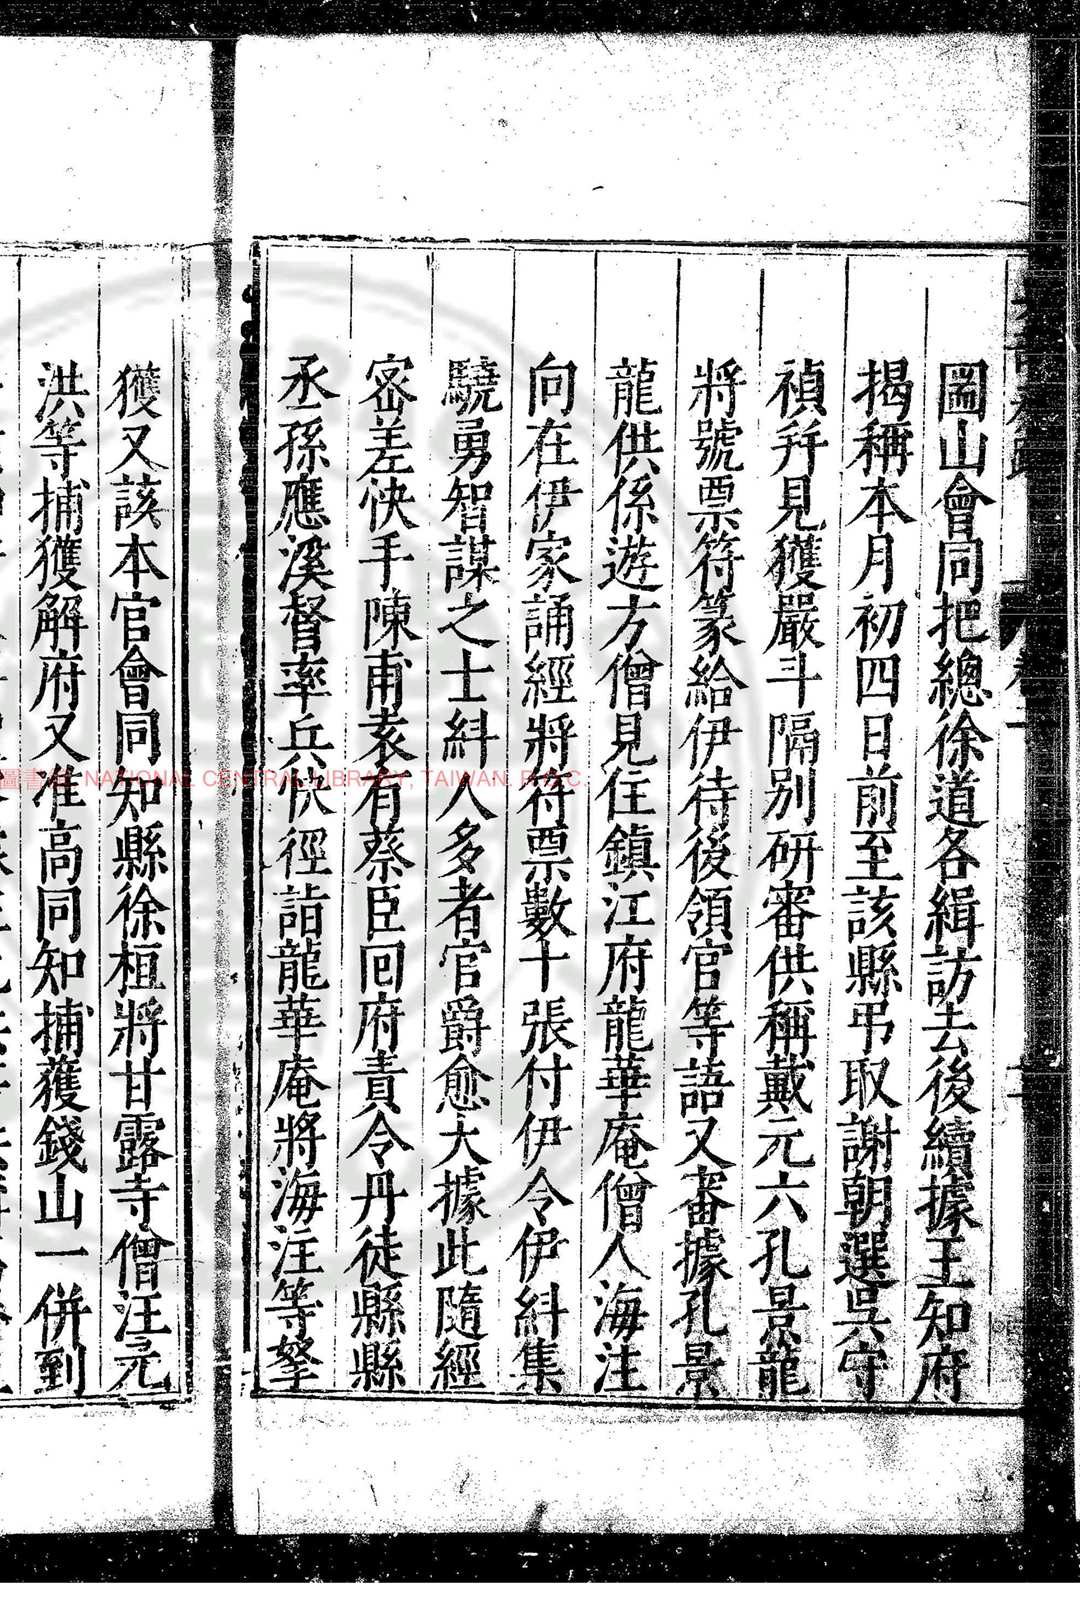 圌山會同把總徐道各緝訪去後續據王知府
揭稱本月初四日前至該縣弔取謝朝選吳守
禎幷見獲嚴斗隔别研審供稱戴元六孔景龍
將號票符篆給伊待後領官等語又審據孔景
龍供係遊方僧見住鎮江府龍華庵僧人海注
向在伊家誦經將符票數十張付伊令伊糾集
驍勇智謀之士糾人多者官爵愈大據此隨經
宻差快手陳甫袁有蔡臣回府責令丹徒縣縣
丞孫應溪督率兵快徑詣龍華庵將海注等拏
獲又該本官會同知縣徐桓將甘露寺僧汪元
洪等捕獲解府又准高同知捕獲錢山一併到
NATIONAL CENTRAL LIBRARY, TAIWAN. R.O.C.